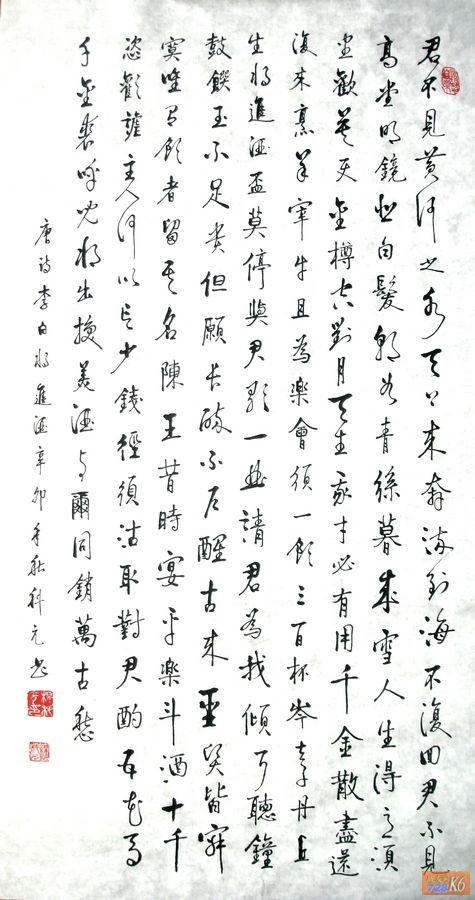 君不見黄河之水天上来奔流到海不復回君不見
高堂明鏡悲白髮朝如青絲暮成雪人生得意須
盡歡莫使金樽空對月天生我才必有用千金散盡還
復来烹羊宰牛且為樂會須一飲三百杯岑夫子丹丘
生将進酒盃莫停與君歌一曲請君為我傾耳聽鐘
鼓饌玉不足貴但願长醉不醒古来聖賢皆寂
寞唯有飲者留其名陳王昔時宴平樂斗酒十千
恣歡謔主人何以言少錢徑須沽取對君酌五花馬
千金裘呼兒将出換美酒与爾同銷萬古愁
唐詩李白将進酒辛卯年秋科元书
728 K6